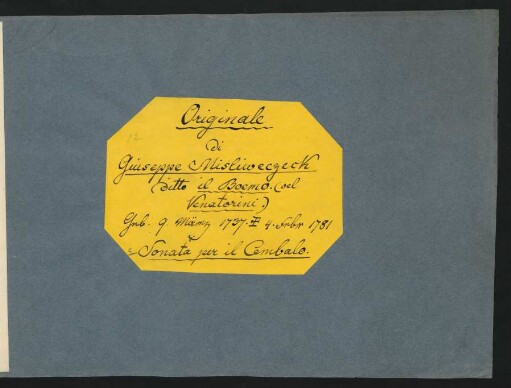 Originale
12
di
Giuseppe Misliweczeck
(ditto il Boemo. (vel
Venatorini.)
Geb. 9 März 1737. ‡ 4. Febr 1781
Sonata per il Cembalo.